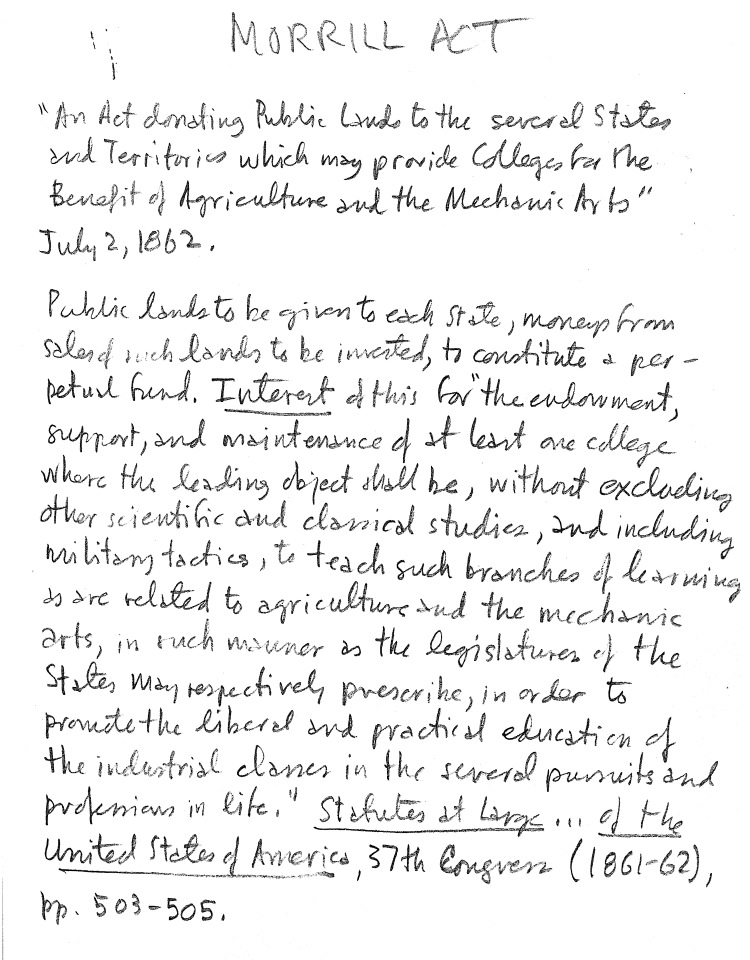 MORRILL ACT
"An Act donating Public Lands to the several States
and Territories which may provide Colleges for the
Benefit of Agriculture and the Mechanic Arts"
July 2, 1862.
Public lands to be given to each state, moneys from
sales of such lands to be invested, to constitute a per-
petual fund. Interest of this for "the endowment,
support, and maintenance of at least one college
where the leading object shall be, without excluding
other scientific and classical studies, and including
military tactics, to teach such branches of learning
as are related to agriculture and the mechanic
arts, in such manner as the legislatures of the
States may respectively prescribe, in order to
promote the liberal and practical education of
the industrial classes in the several pursuits and
professions in life." Statutes at Large ... of the
United States of America, 37th Congress (1861-62),
pp. 503-505.